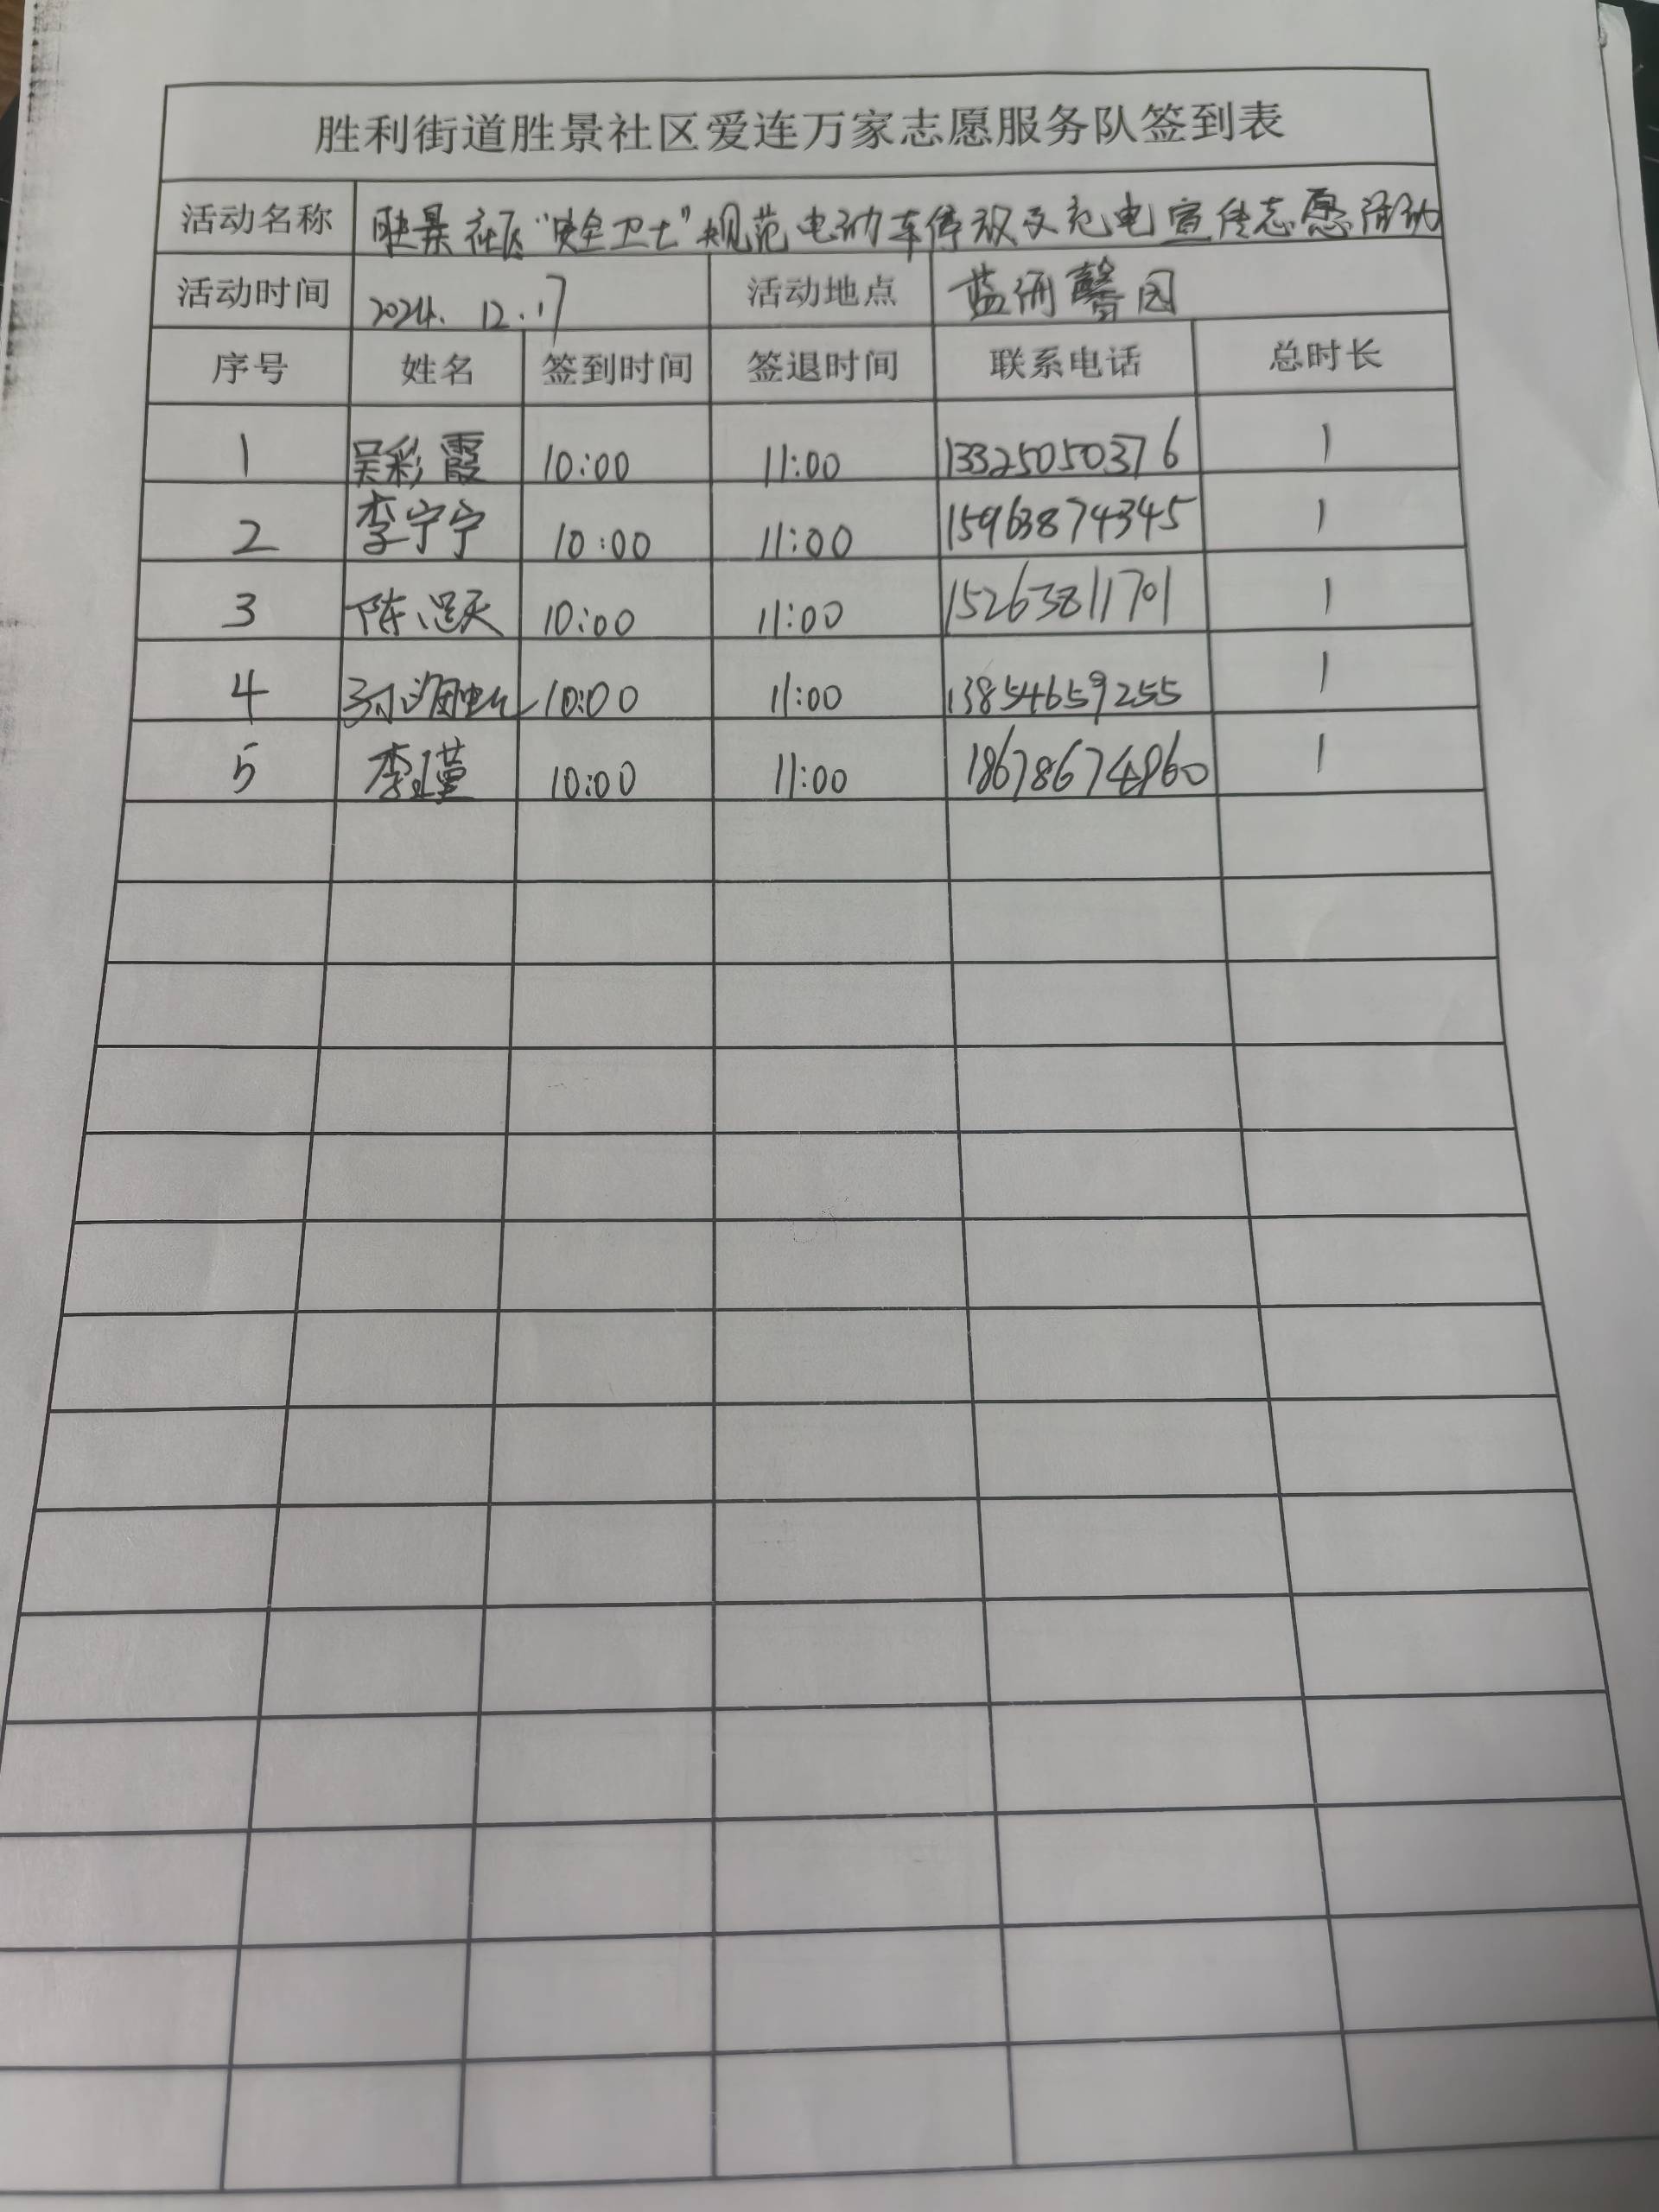 胜利街道胜景社区爱连万家志愿服务队签到表
活动名称 胜景社区“安全卫士”规范电动车停放及充电宣传志愿活动
活动时间 2024.12.17 活动地点 蓝海馨园
序号 姓名 签到时间 签退时间 联系电话 总时长
1 吴彩霞 10:00 11:00 13325050376 1
2 李宁宁 10:00 11:00 15963874345 1
3 陈 10:00 11:00 15263811701 1
4 孙海 10:00 11:00 13854659255 1
5 李瑾 10:00 11:00 18678674960 1